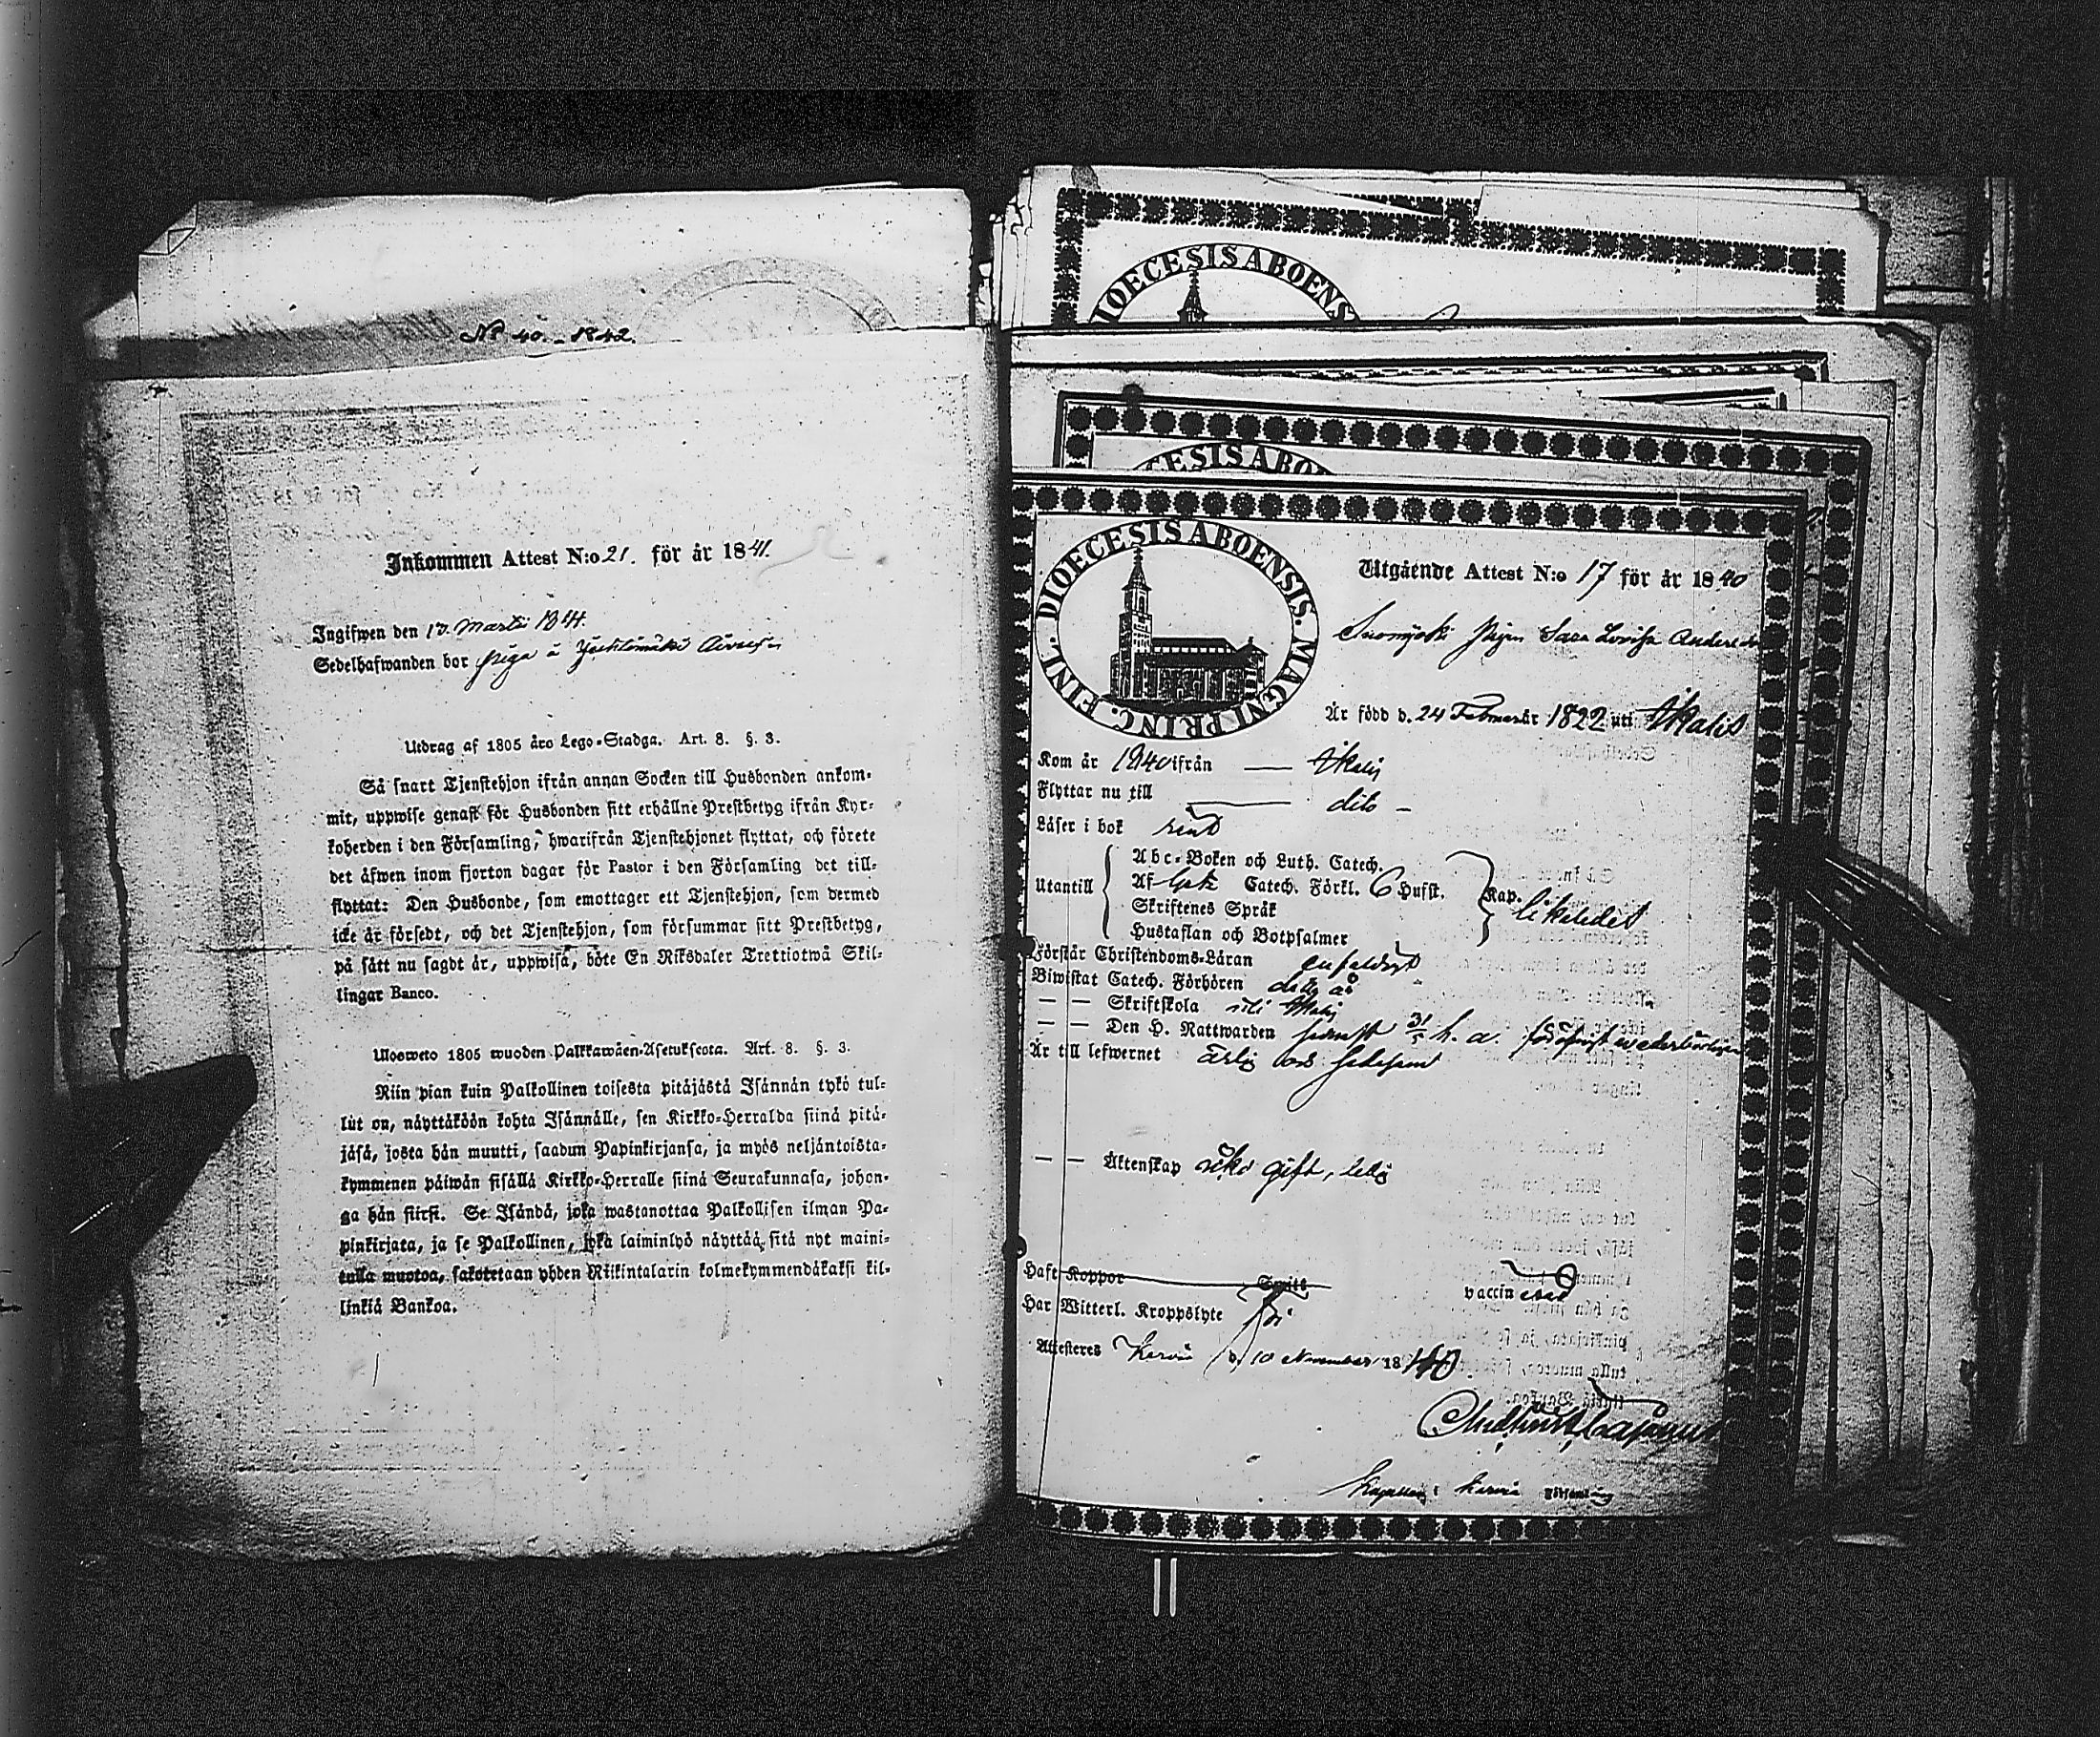 No 40. - 1842.
Inkommen Attest N:o 21. för år 1841.
Ingifwen den 13. Martii 1841.
Sedelhafwanden bor piga å
Utdrag af 1805 års Lego-Stadga. Art. 8. §. 3.
Så snart Tjenstehjon ifrån annan Socken till Husbonden ankom-
mit, uppwise genast för Husbonden sitt erhållne Prestbetyg ifrån Kyr-
koherden i den Församling, hwarifrån Tjenstehjonet flyttat, och förete
det äfwen inom fjorton dagar för Pastor i den Församling det till-
flyttat: Den Husbonde, som emottager ett Tjenstehjon, som dermed
icke är försedt, och det Tjenstehjon, som försummar sitt Prestbetyg,
på sätt nu sagdt är, uppwisa, böte En Riksdaler Trettiotwå Skil-
lingar Banco.
Ulosweto 1805 wuoden Palkkawäen-Asetuksesta. Art. 8. §. 3.
Niin pian kuin Palkollinen toisesta pitäjästä Isännän tykö tul-
lut on, näyttäköön kohta Isännälle, sen Kirkko-Herralda siinä pitä-
jäsä, josta hän muutti, saadun Papinkirjansa, ja myös neljäntoista-
kymmenen päiwän sisällä Kirkko-Herralle siinä Seurakunnasa, johon-
ga hän siirsi. Se Isändä, joka wastanottaa Palkollisen ilman Pa-
pinkirjata, ja se Palkollinen, joka laiminlyö näyttää sitä nyt maini-
tulla muotoa, sakotetaan yhden Riikintalarin kolmekymmendäkaksi kil-
linkiä Bankoa.
DIOECESIS ABOENS
CESIS ABO
DIOECESIS ABOENSIS. MAGNI PRINC. FINL.
Utgående Attest N:o 17 för år 1840
Pigan Sara Lovisa Anders
Är född d. 24 Februar 1822 uti Ikalis
Kom år 1840 ifrån — Ikalis
Flyttar nu till — dito —
Läser i bok rent
Utantill
Abc-Boken och Luth. Catech.
Af Catech. Förkl. 6 Hufst.
Skriftenes Språk
Hustaflan och Botpsalmer
Kap. likaledes
Förstår Christendoms-Läran enfaldigt
Biwistat Catech. Förhören
— — Skriftskola uti Ikalis
— — Den H. Nattwarden senast 31/5 h. a.
Är till lefwernet ärlig och sedesam
— — Äktenskap icke gift, ledig
Haft Koppor Smitt vaccinerad
Har Witterl. Kroppslyte Nei
Attesteras Kervia d. 10 November 1840
Kapellan i Kervia Församling